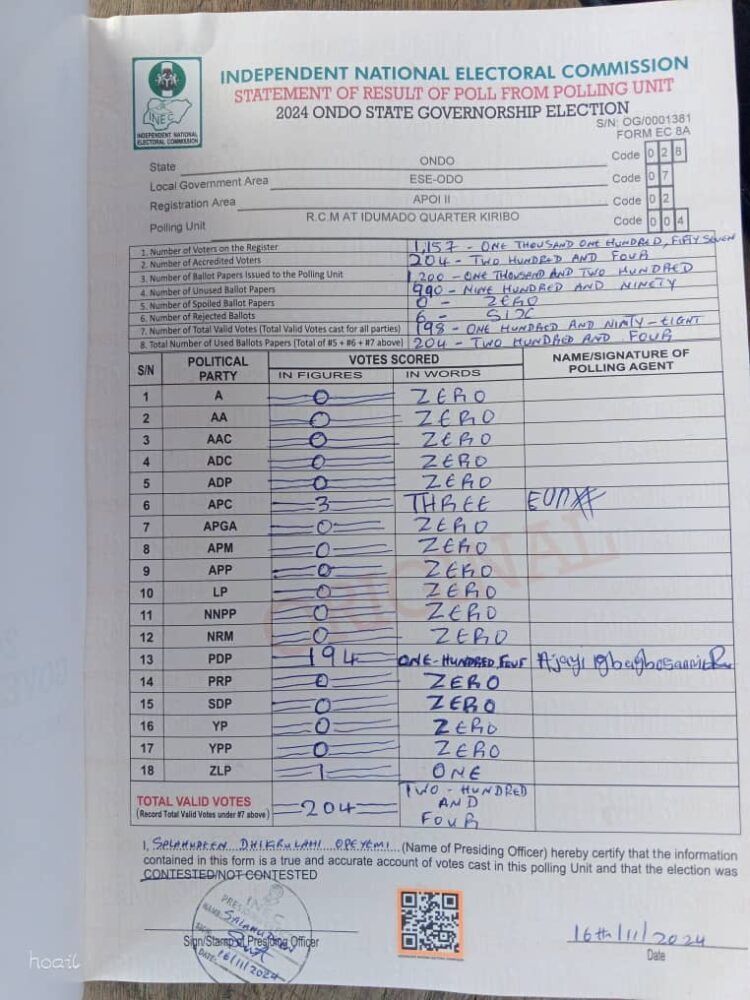 INDEPENDENT NATIONAL ELECTORAL COMMISSION
STATEMENT OF RESULT OF POLL FROM POLLING UNIT
2024 ONDO STATE GOVERNORSHIP ELECTION
INEC
INDEPENDENT NATIONAL ELECTORAL COMMISSION
S/N: OG/0001381
FORM EC 8A
State ONDO Code 0 2 8
Local Government Area ESE-ODO Code 0 7
Registration Area APOI II Code 0 2
Polling Unit R.C.M AT IDUMADO QUARTER KIRIBO Code 0 0 4
1. Number of Voters on the Register 1,157 - ONE THOUSAND ONE HUNDRED, FIFTY SEVEN
2. Number of Accredited Voters 204 - TWO HUNDRED AND FOUR
3. Number of Ballot Papers Issued to the Polling Unit 1200 - ONE THOUSAND AND TWO HUNDRED
4. Number of Unused Ballot Papers 990 - NINE HUNDRED AND NINETY
5. Number of Spoiled Ballot Papers 0 - ZERO
6. Number of Rejected Ballots 6 - SIX
7. Number of Total Valid Votes (Total Valid Votes cast for all parties) 198 - ONE HUNDRED AND NINTY-EIGHT
8. Total Number of Used Ballots Papers (Total of #5 + #6 + #7 above) 204 - TWO HUNDRED AND FOUR
S/N POLITICAL PARTY VOTES SCORED NAME/SIGNATURE OF POLLING AGENT
IN FIGURES IN WORDS
1 A 0 ZERO
2 AA 0 ZERO
3 AAC 0 ZERO
4 ADC 0 ZERO
5 ADP 0 ZERO
6 APC 3 THREE
7 APGA 0 ZERO
8 APM 0 ZERO
9 APP 0 ZERO
10 LP 0 ZERO
11 NNPP 0 ZERO
12 NRM 0 ZERO
13 PDP 194 ONE-HUNDRED, FOUR Ajayi
14 PRP 0 ZERO
15 SDP 0 ZERO
16 YP 0 ZERO
17 YPP 0 ZERO
18 ZLP 1 ONE
ORIGINAL
TOTAL VALID VOTES (Record Total Valid Votes under #7 above) 204 TWO-HUNDRED AND FOUR
I, SALAHUDEEN DHIKRULAHI OPEYEMI (Name of Presiding Officer) hereby certify that the information
contained in this form is a true and accurate account of votes cast in this polling Unit and that the election was
CONTESTED/NOT CONTESTED
INEC
NAME: SALAHUDEEN
Sign/Stamp of Presiding Officer
DATE: 16/11/2024
16th/11/2024
Date